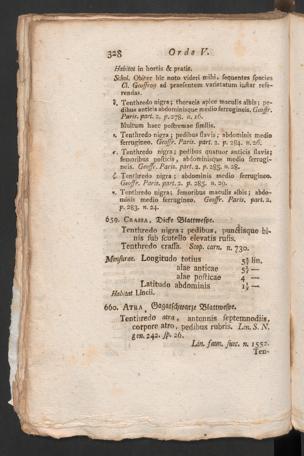 328 Ordo V.
Habitat in hortis & pratis.
Schol. Obiter hic noto videri mihi, sequentes species
Cl. Geoffroy ad praesentem varietatum iustar refe-
rendas.
Tenthredo nigra; thoracis apice maculis albis; pe-
dibus anticis abdominisque medio ferrugineis. Geoffr.
Paris. part. 2. p. 278. n. 16.
Multum haec postremae similis.
Tenthredo nigra; pedibus flavis; abdominis medio
ferrugineo. Geoffr. Paris. part. 2. p. 284. n. 26.
Tenthredo nigra; pedibus quatuor anticis flavis;
femoribus posticis, abdominisque medio ferrugi-
neis. Geoffr. Paris. part. 2. p. 285. n. 28.
ζ. Tenthredo nigra; abdominis medio ferrugineo.
Geoffr. Paris. part. 2. p. 285. n. 29.
Tenthredo nigra; femoribus maculis albis; abdo-
minis medio ferrugineo. Geoffr. Paris. part. 2.
p. 283. n. 24.
659. CRASSA, Dicke Blattwespe.
Tenthredo nigra; pedibus, punctisque bi-
nis sub scutello elevatis rufis.
Tenthredo crassa. Scop. carn. n. 730.
Mensurae. Longitudo totius 5¾ lin.
alae anticae 5½ —
alae posticae 4 —
Latitudo abdominis 1½ —
Habitat Lincii.
660. ATRA, Gagatschwarze Blattwespe.
Tenthredo atra, antennis septemnodiis,
corpore atro, pedibus rubris. Lin. S. N.
gen. 242. sp. 26.
Lin. faun. suec. n. 1552.
Ten-